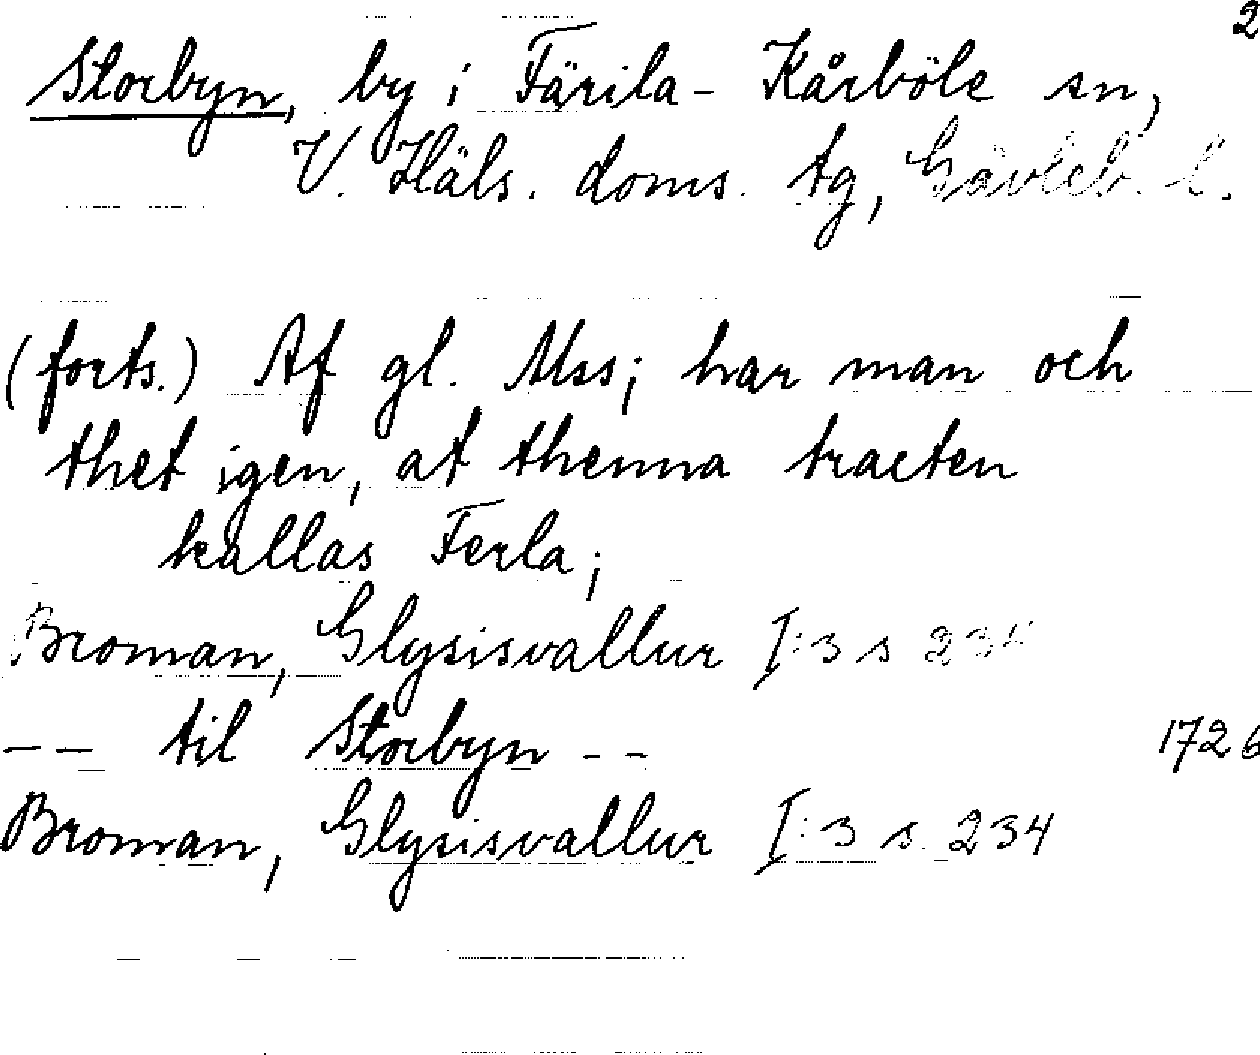 2
Storbyn, by i Färila-Kårböle sn,
V. Häls. doms. tg, Gävleb. l.
(forts.) Af gl. Mss; har man och
thet igen, at thenna tracten
kallas Ferla;
Broman, Glysisvallur I:3 s 234
-- til Storbyn -- 1726
Broman, Glysisvallur I:3 s. 234